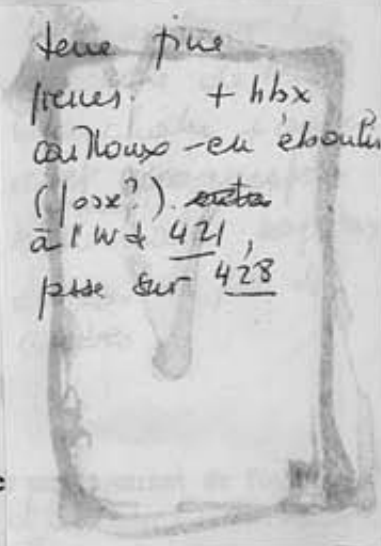 terre fine
pierres. + nbx
cailloux - en éboulis
(fosx?).
à l'W d 421,
pose sur 428